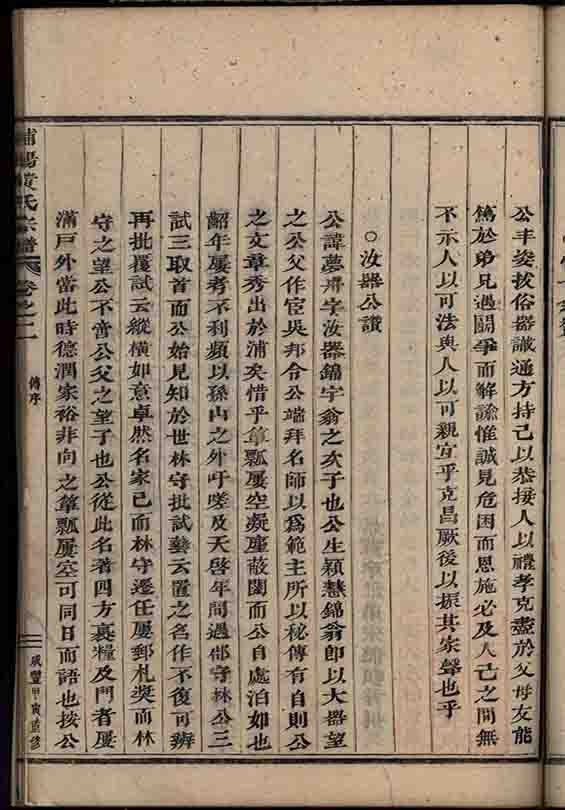 公丰姿拔俗器識通方持己以恭接人以禮孝克盡於父母友能
篤於弟兄遇鬪爭而解諭惟誠見危困而恩施必及人己之間無
不示人以可法與人以可親宜乎克昌厥後以振其家聲也乎
○汝器公讚
公諱夢鼐字汝器錦宇翁之次子也公生穎慧錦翁卽以大器望
之公父作宦吳邦令公端拜名師以爲範主所以秘傳有自則公
之文章秀出於浦矣惜乎簞瓢屢空凝塵蔽閣而公自處泊如也
韶年屢考不利頻以孫山之外吁嗟及天啓年間遇郡守林公三
試三取首而公始見知於世林守批試藝云置之名作不復可辨
再批覆試云縱橫如意卓然名家已而林守遷任屢郵札奬而林
守之望公不啻公父之望子也公從此名著四方裹糧及門者屢
滿戸外當此時德潤家裕非向之簞瓢屢空可同日而語也按公
浦陽黃氏宗譜 卷之二 傳序 咸豐甲寅重修